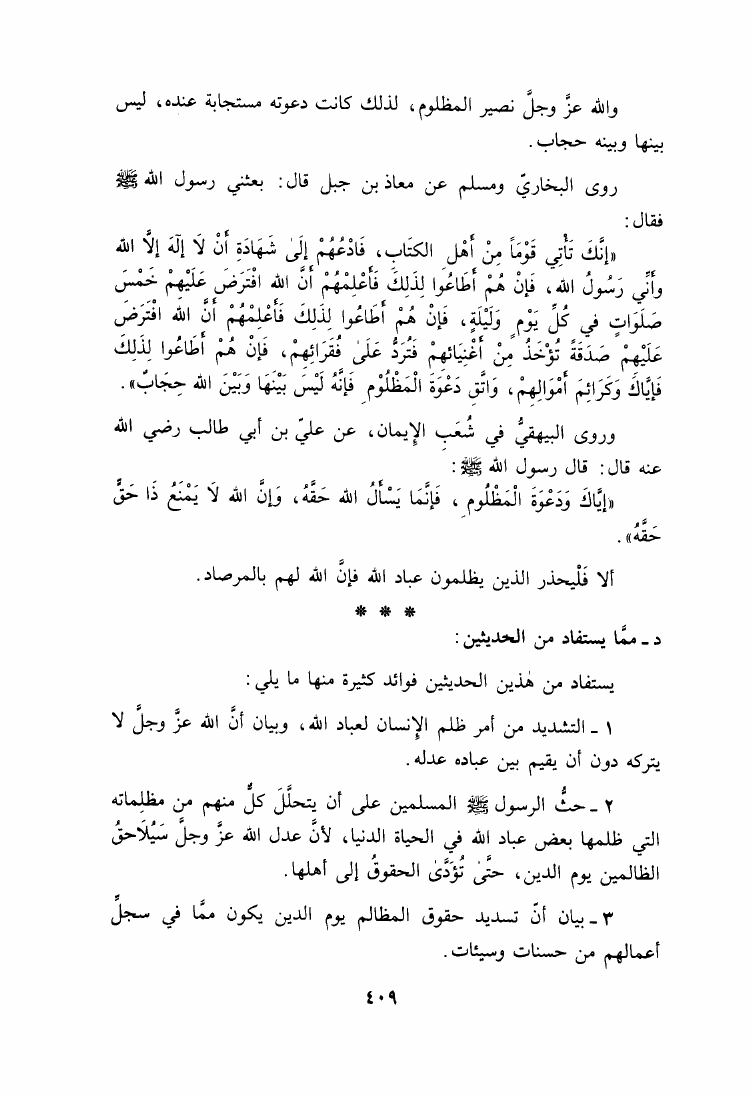 والله عزَّ وجلَّ نصير المظلوم، لذلك كانت دعوته مستجابة عنده، ليس
بينها وبينه حجاب.
روى البخاريّ ومسلم عن معاذ بن جبل قال: بعثني رسول الله ﷺ
فقال:
«إِنَّكَ تَأْتِي قَوْمَاً مِنْ أَهْلِ الكتَابِ، فَادْعُهُمْ إِلَىٰ شَهَادَةِ أَنْ لَا إِلَهَ إِلَّا الله
وأَنِّي رَسُولُ الله، فَإِنْ هُمْ أَطَاعُوا لِذَلِكَ فَأَعْلِمْهُمْ أَنَّ الله افْتَرَضَ عَلَيْهِمْ خَمْسَ
صَلَوَاتٍ في كُلِّ يَوْمٍ وَلَيْلَةٍ، فَإِنْ هُمْ أَطَاعُوا لِذَلِكَ فَأَعْلِمْهُمْ أَنَّ الله افْتَرَضَ
عَلَيْهِمْ صَدَقَةً تُؤْخَذُ مِنْ أَغْنِيَائهِمْ فَتُرَدُّ عَلَىٰ فُقَرَائِهِمْ، فَإِنْ هُمْ أَطَاعُوا لِذَلِكَ
فَإِيَّاكَ وَكَرَائِمَ أَمْوَالِهِمْ، وَاتَّقِ دَعْوَةَ الْمَظْلُومِ فَإِنَّهُ لَيْسَ بَيْنَهَا وَبَيْنَ الله حِجَابٌ».
وروى البيهقيُّ في شُعَبِ الإِيمان، عن عليّ بن أبي طالب رضي الله
عنه قال: قال رسول الله ﷺ:
«إِيَّاكَ وَدَعْوَةَ الْمَظْلُومِ، فَإِنَّمَا يَسْأَلُ الله حَقَّهُ، وَإِنَّ الله لَا يَمْنَعُ ذَا حَقٍّ
حَقَّهُ».
ألا فَلْيحذر الذين يظلمون عباد الله فإنَّ الله لهم بالمرصاد.
* * *
د ـ ممَّا يستفاد من الحديثين:
يستفاد من هٰذين الحديثين فوائد كثيرة منها ما يلي:
١ ـ التشديد من أمر ظلم الإِنسان لعباد الله، وبيان أنَّ الله عزَّ وجلَّ لا
يتركه دون أن يقيم بين عباده عدله.
٢ ـ حثُّ الرسول ﷺ المسلمين على أن يتحلَّلَ كلُّ منهم من مظلماته
التي ظلمها بعض عباد الله في الحياة الدنيا، لأنَّ عدل الله عزَّ وجلَّ سَيُلَاحقُ
الظالمين يوم الدين، حتَّىٰ تُؤَدَّىٰ الحقوقُ إلى أهلها.
٣ ـ بيان أنّ تسديد حقوق المظالم يوم الدين يكون ممَّا في سجلِّ
أعمالهم من حسنات وسيئات.
٤٠٩